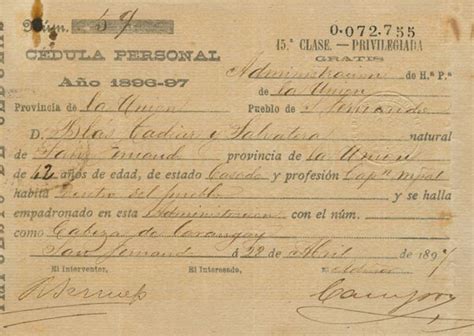 Núm. 59
0.072.755
CÉDULA PERSONAL
15.ª CLASE.—PRIVILEGIADA
GRATIS
Año 1896-97
Administracion de H.ª P.ª
de La Union
Provincia de La Union Pueblo de S. Fernando
D. Blas y Salvatera natural
de provincia de La Union
de 42 años de edad, de estado Casado y profesión Cap.n
habita dentro del pueblo y se halla
empadronado en esta Administracion con el núm.
como Cabeza de Barangay
San Fernando á 22 de Abril de 1897
El Interventor, El Interesado,
IMPUESTO DE CÉDULAS